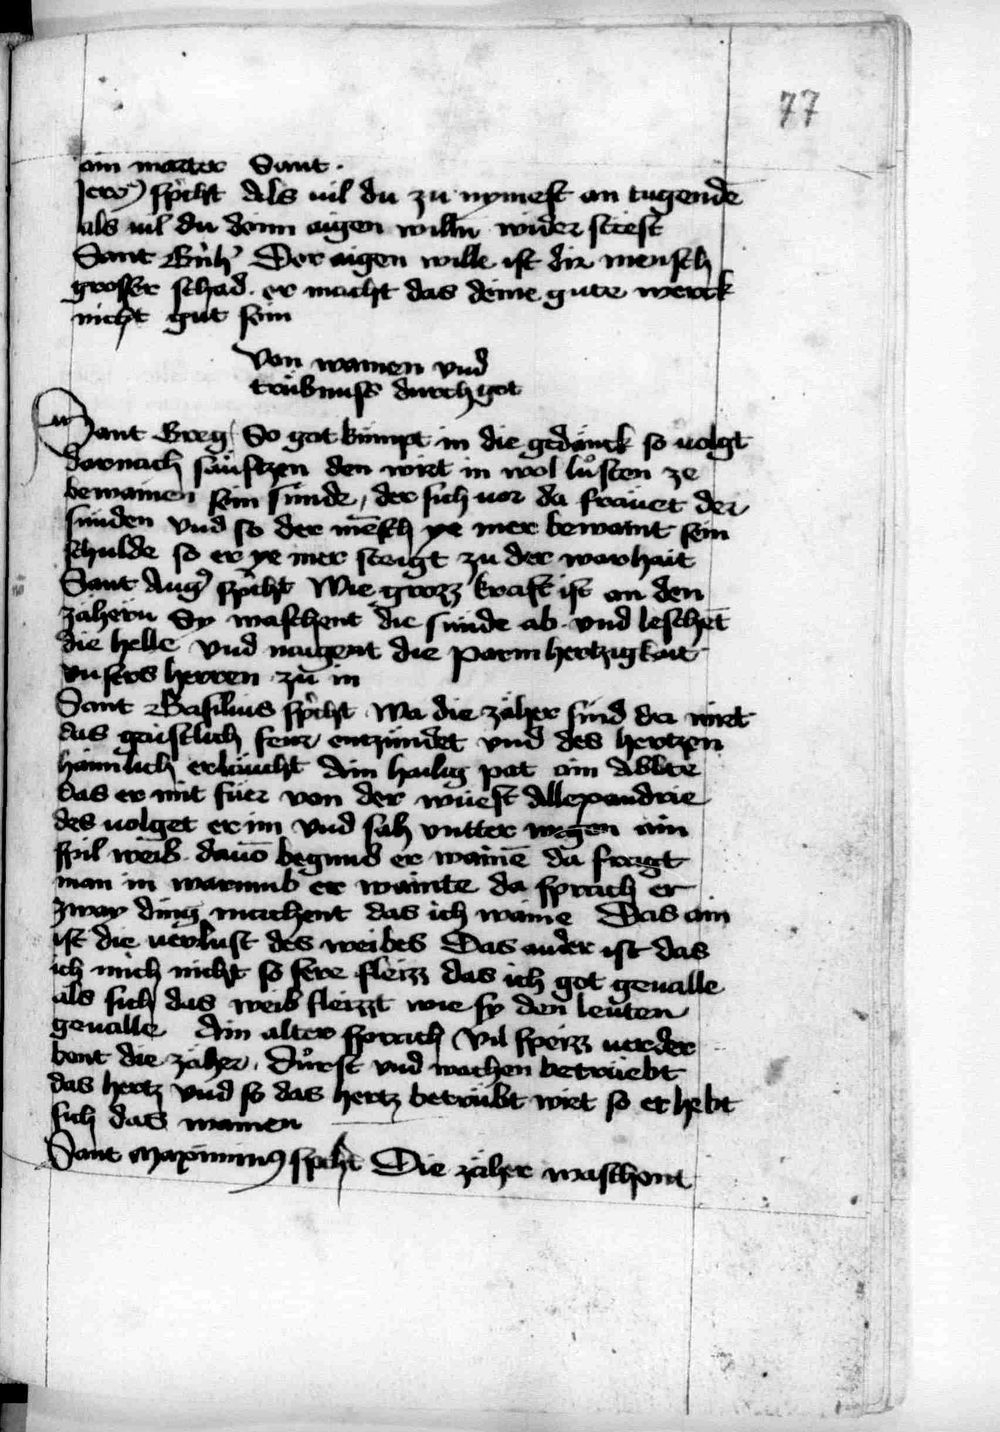 77
ain marter Sant
Jero) spͥcht Als uil du zu nymest an tugendē
als uil du deinn aigen willn wider strest
Sant Der aigen wille ist dir mensch
grosser schad. er macht das deine gute werck
nicht gut sein
Von wainen vnd
trübnuss durch got
Sant Greg So got kümpt in die gedänck so uolgt
darnach säuftzen den wirt in wol lůsten ze
bewainen sein sünde, der sich uor da fräuet der
sunden vnd so der mēsch ye mer bewaint sein
schulde so er ye mer steigt zu der warhait
Sant Aug spͥcht Wie grozz kraft ist an den
zähern Sy waschent die sünde ab. vnd leschēt
die helle vnd naigent die parmhertzigkait
vnsers herren zu in
Sant Basilius spͥcht Wa die zäher sind da wirt
das gaistlich feur entzündet vnd des hertzen
haimlich erläucht Ain hailig pat ain Abbte
das er mit füer von der wüest Allexandrie
des uolget er im vnd sah vnter wegen ain
spil weib. dauō begund er wainē da fragt
man in warumb er wainte da sprach er
zway ding machent das ich waine Das ain
ist die uerlust des weibes Das ander ist das
ich mich nicht so sere fleizz das ich got geualle
als sich das weib fleizzt wie sy den leuten
geualle Ain alter sprach Vil speizz uerder
bent die zäher. Důrst vnd wachen betrüebt
das hertz vnd so das hertz betrübt wirt so erhebt
sich das wainen
Sant Maximinꝰ spͥcht Die zäher waschent